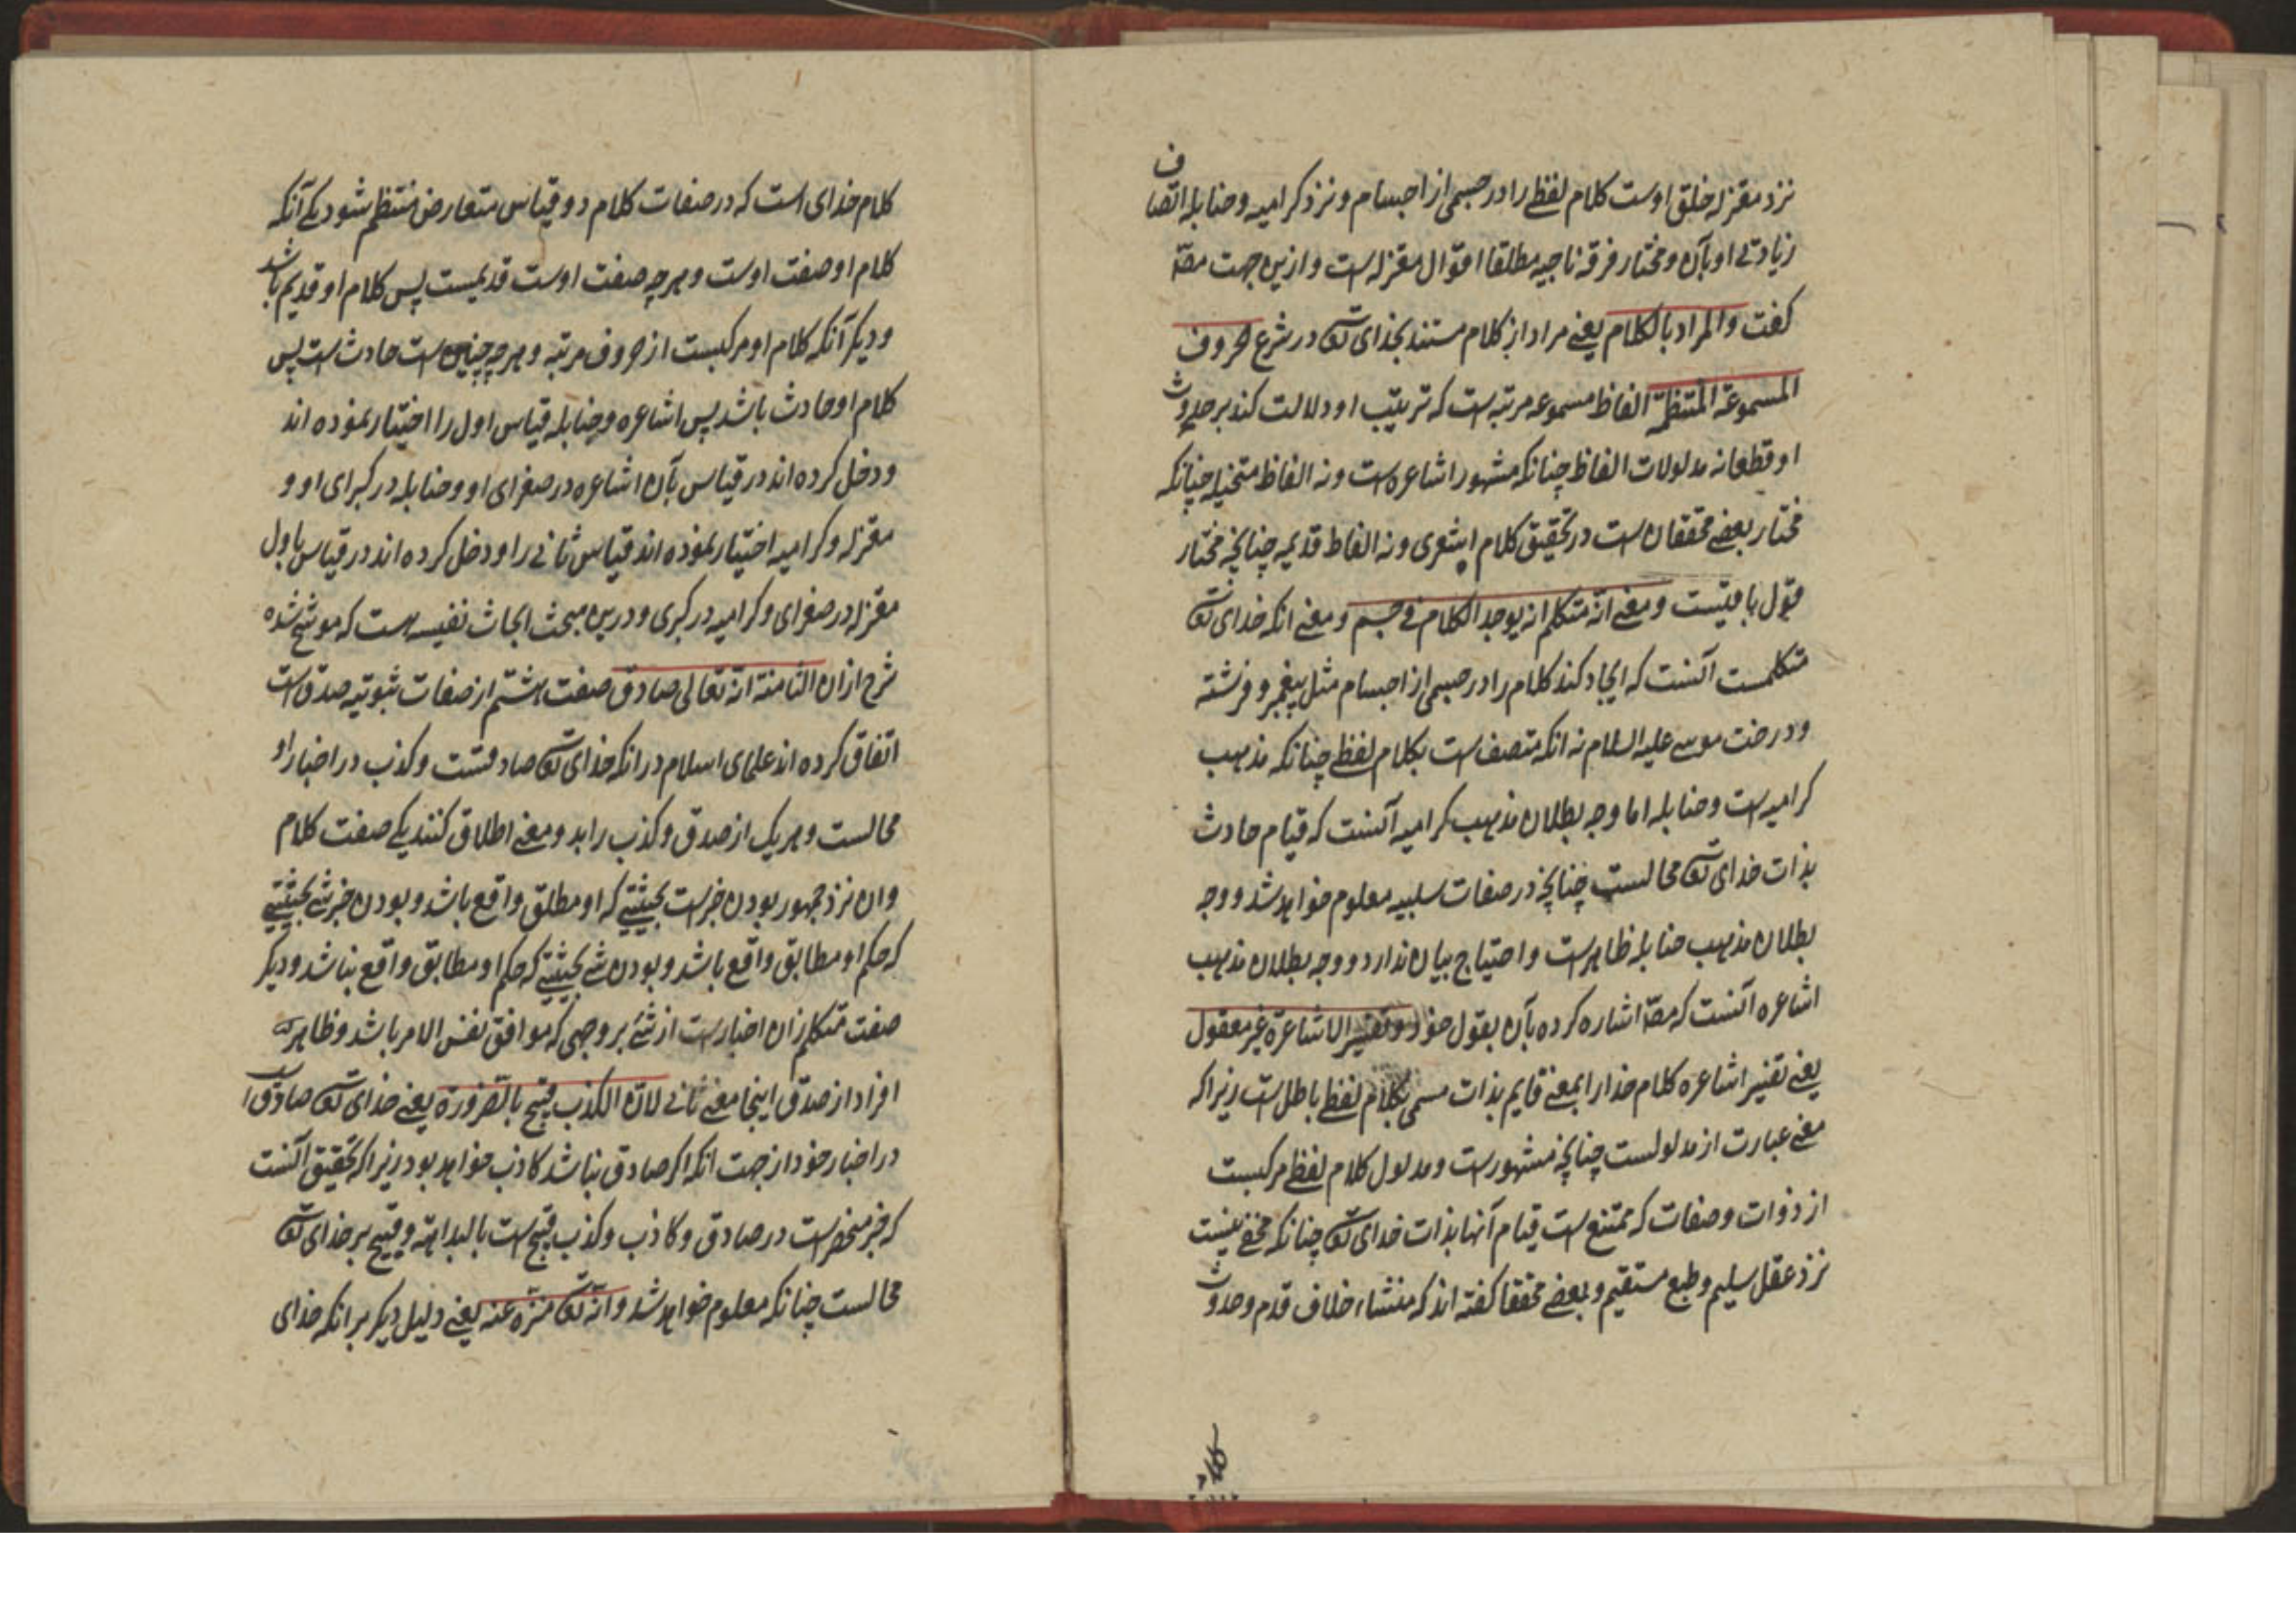 نزد معتزله خلق اوست کلام لفظی را در جسمی از اجسام و نزد کرامیه و حنابله اتصاف
زیادتی او بآن و مختار فرقه ناجیه مطلقا اقوال معتزله است و ازین جهت مصّ
کفت والمراد بالکلام یعنی مراد از کلام مستند بخدای تعه در شرع حروف
المسموعة المنتظمّة الفاظ مسموعه مرتبه است که ترتیب او دلالت کند بر حدوث
او قطعا نه مدلولات الفاظ چنانکه مشهور اشاعره است و نه الفاظ متخیله چنانکه
مختار بعضی محققان است در تحقیق کلام اشعری و نه الفاظ قدیمه چنانچه مختار
قول باقیست و معنی انّه متکلم انه یوجد الکلام فی جسم و معنی انکه خدای تعه
متکلمست آنست که ایجاد کند کلام را در جسمی از اجسام مثل پیغمبر و فرشته
و درخت موسی علیه السلام نه انکه متصف است بکلام لفظی چنانکه مذهب
کرامیه است و حنابله اما وجه بطلان مذهب کرامیه آنست که قیام حادث
بذات خدای تعه محالست چنانچه در صفات سلبیه معلوم خواهد شد و وجه
بطلان مذهب حنابله ظاهرست و احتیاج بیان ندارد و وجه بطلان مذهب
اشاعره آنست که مصّ اشاره کرده بآن بقول خود و تفسیر الاشاعرة غیر معقول
یعنی تفسیر اشاعره کلام خدا را بمعنی قایم بذات مسمی بکلام لفظی باطل است زیرا که
معنی عبارت از مدلولست چنانچه مشهورست و مدلول کلام لفظی مرکبست
از ذوات و صفات که ممتنع است قیام آنها بذات خدای تعه چنانکه مخفی نیست
نزد عقل سلیم و طبع مستقیم و بعضی محققا کفته اند که منشاء خلاف قدم و حدوث
کلام خدای است که در صفات کلام دو قیاس متعارض منتظم شود یکی آنکه
کلام او صفت اوست و هر چه صفت اوست قدیمست پس کلام او قدیم باشد
و دیکر آنکه کلام او مرکبست از حروف مرتبه و هر چه چنین است حادث است پس
کلام او حادث باشد پس اشاعره و حنابله قیاس اول را اختیار نموده اند
و دخل کرده اند در قیاس بآن اشاعره در صغرای او و حنابله در کبرای او و
معتزله و کرامیه اختیار نموده اند قیاس ثانی را و دخل کرده اند در قیاس باول
معتزله در صغرای و کرامیه در کبری و درین مبحث ابحاث نفیسه است که موشح شده
شرح ازان الثامنة انه تعالی صادق صفت هشتم از صفات ثبوتیه صدق است
اتفاق کرده اند علمای اسلام در انکه خدای تعه صادقست و کذب در اخبار او
محالست و هر یک از صدق و کذب را بدو معنی اطلاق کنند یکی صفت کلام
و ان نزد جمهور بودن خبرست بحیثیتی که او مطلق واقع باشد و بودن خبر شی بحیثیتی
که حکم او مطابق واقع باشد و بودن شی بحیثیتی که حکم او مطابق واقع نباشد و دیکر
صفت متکلم زان اخبارست از شی بر وجهی که موافق نفس الامر باشد و ظاهر
افراد از صدق اینجا معنی ثانی لان الکذب قبیح بالضرورة یعنی خدای تعه صادق است
در اخبار خود از جهت انکه اکر صادق نباشد کاذب خواهد بود زیرا که تحقیق آنست
که خبر منحصرست در صادق و کاذب و کذب قبیح است بالبداهة و قبیح بر خدای تعه
محالست چنانکه معلوم خواهد شد و انه تعه منزه عنه یعنی دلیل دیکر بر انکه خدای